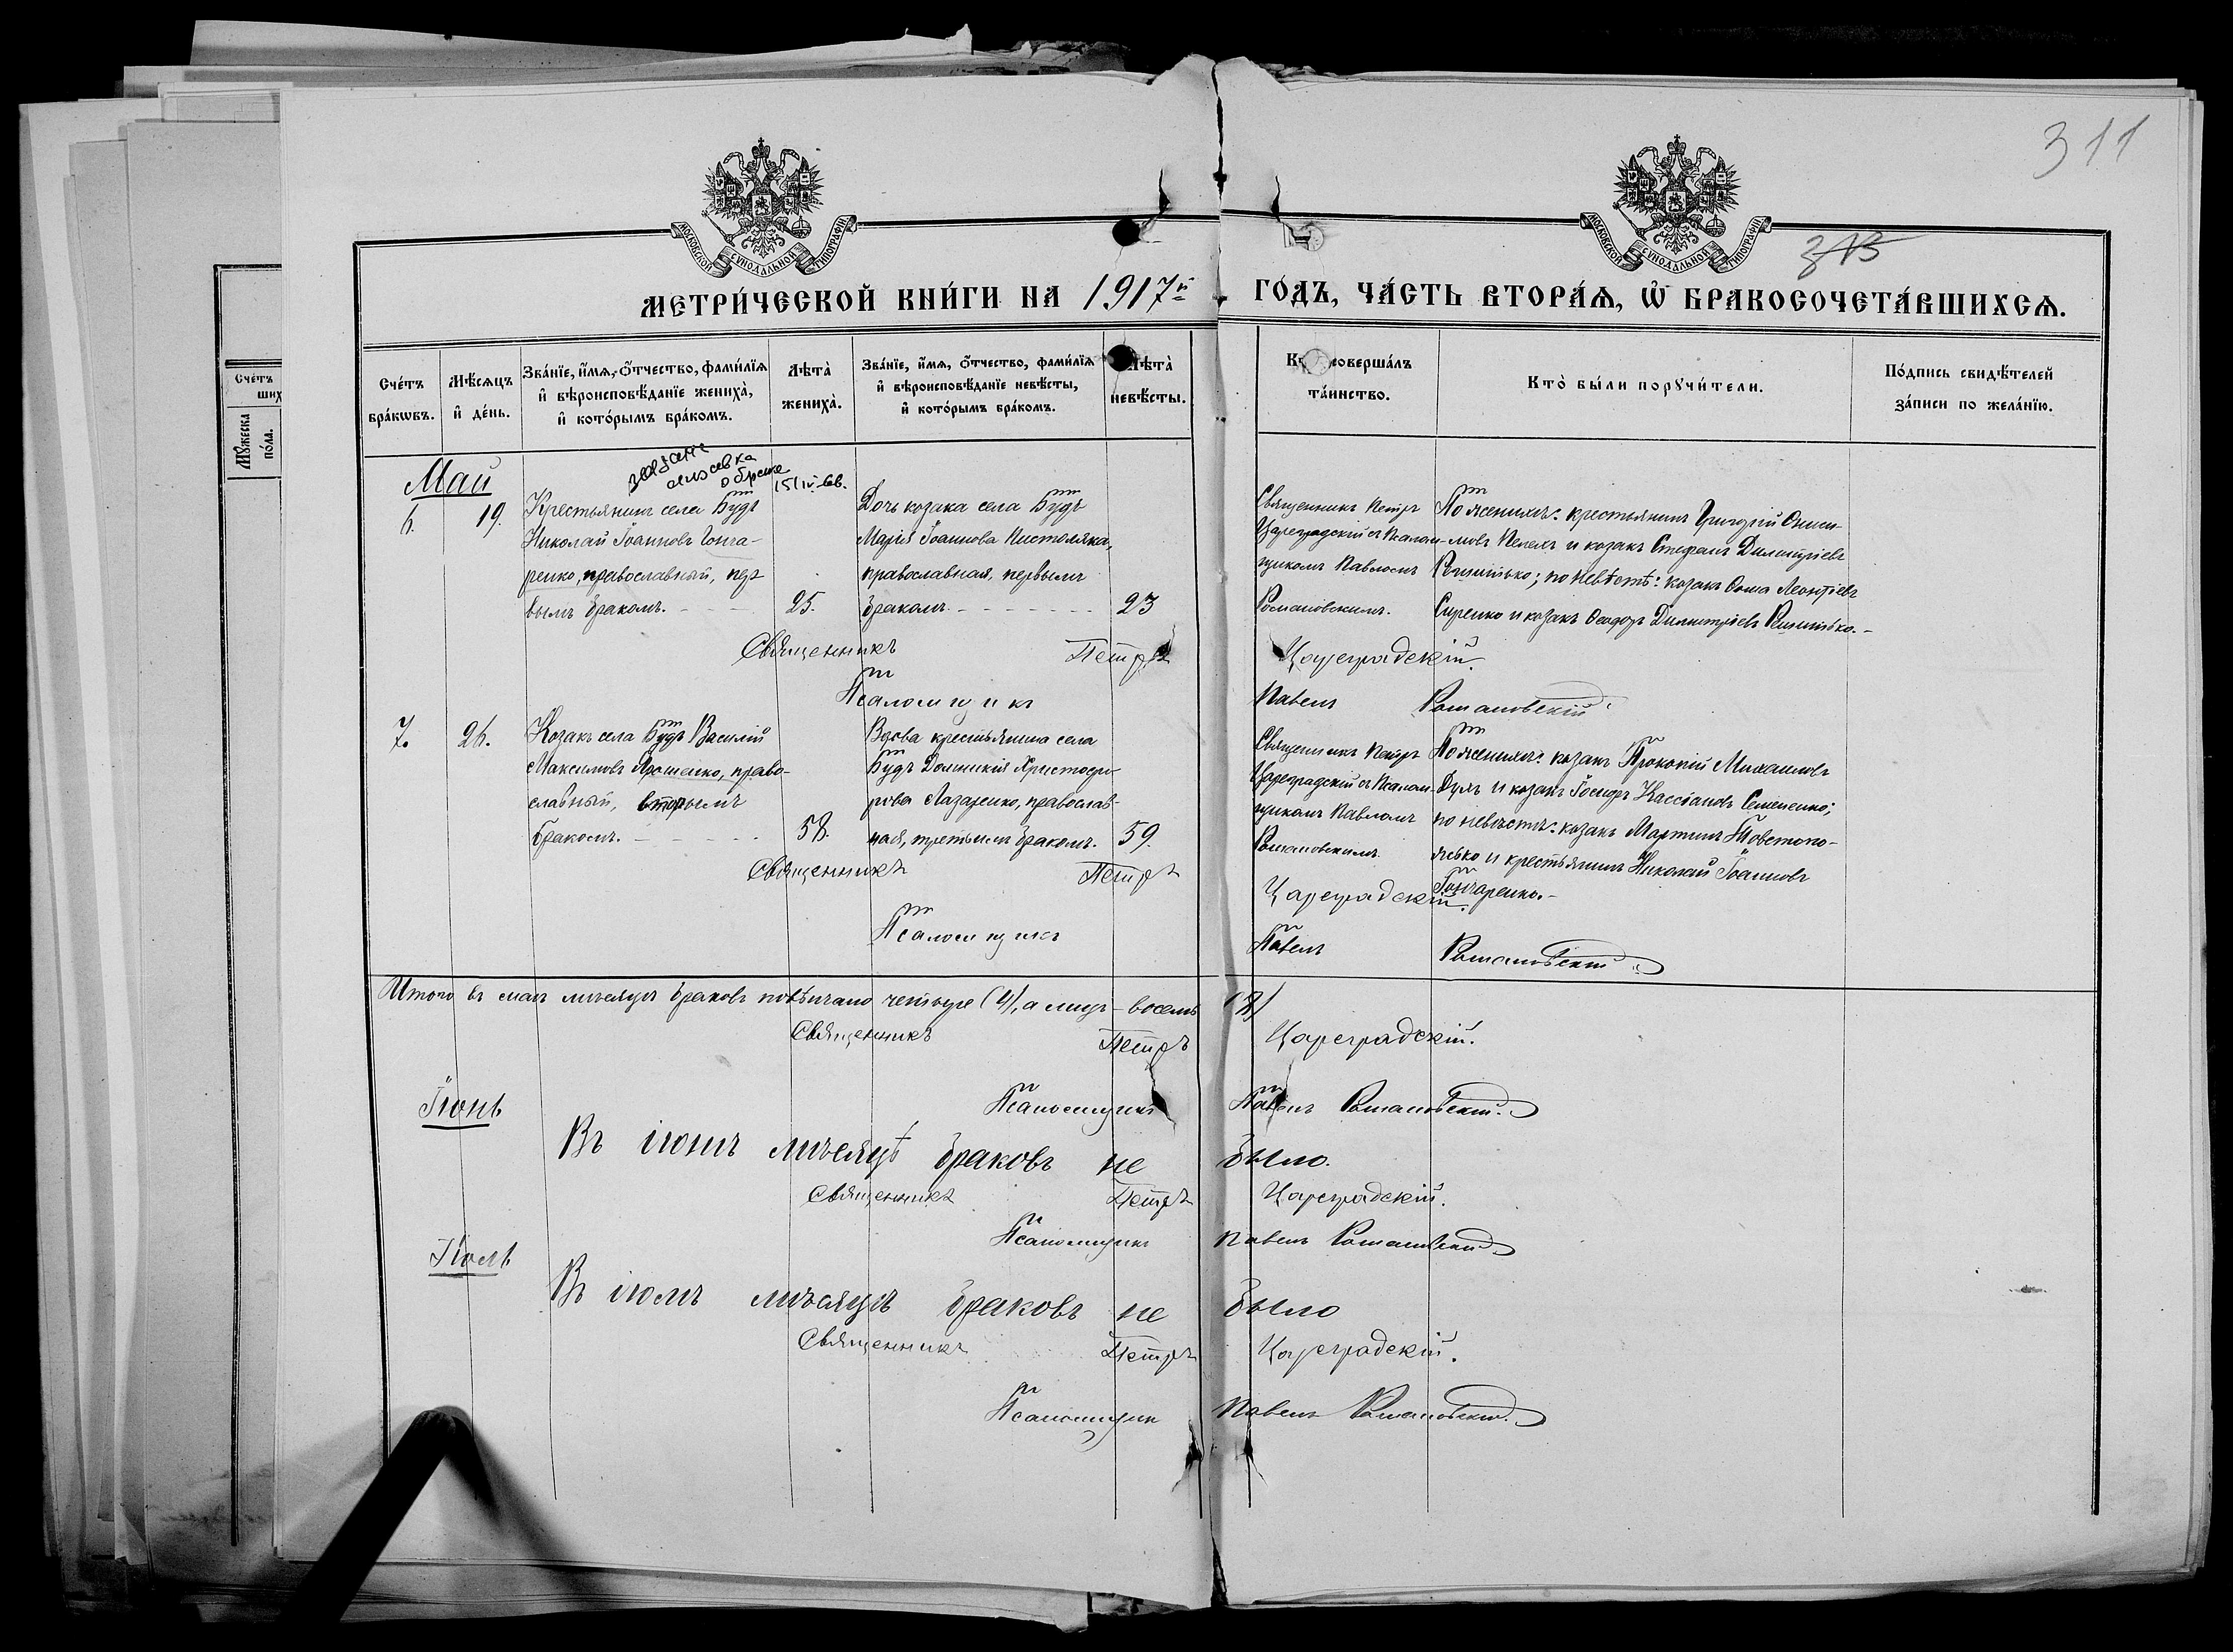 311
313
МОСКОВСКОЙ СѴНОДАЛЬНОЙ ТИПОГРАФІИ
МОСКОВСКОЙ СѴНОДАЛЬНОЙ ТИПОГРАФІИ
МЕТРИ́ЧЕСКОЙ КНИ́ГИ НА 1917й ГО́ДЪ, ЧА́СТЬ ВТОРА́Ѧ, Ѡ҆ БРАКОСОЧЕТА́ВШИХСѦ.
Сче́тъ
ших
Мꙋ́жеска
по́ла.
Сче́тъ
бра́кѡвъ.
Мѣ́сѧцъ
и҆ де́нь.
Зва́нїе, и҆́мѧ, ѻ҆́тчество, фами́лїѧ
и҆ вѣроисповѣ́данїе жениха̀,
и҆ кото́рымъ бра́комъ.
Лѣта̀
жениха̀.
Зва́нїе, и҆́мѧ, ѻ҆́тчество, фами́лїѧ
и҆ вѣроисповѣ́данїе невѣ́сты,
и҆ кото́рымъ бра́комъ.
Лѣта̀
невѣ́сты.
соверша́лъ
та́инство.
Кто̀ бы́ли порꙋчи́тели.
По́дпись свидѣ́телей
за́писи по жела́нїю.
Май
6.
19.
Крестьянинъ села Будъ
Николай Іоанновъ Гонча-
ренко, православный, пер
вымъ бракомъ.
25.
Дочь козака села Будъ
Марія Іоаннова Пистоляка,
православная, первымъ
бракомъ.
23
Священникъ Петръ
Цареградскій съ Псалом-
щикомъ Павломъ
Романовскимъ.
По женихѣ: крестьянинъ Григорій Ониси-
мовъ Пепелъ и козакъ Стефанъ Димитріевъ
Решитько; по невѣстѣ: козакъ Ѳома Леонтіевъ
Сиренко и козакъ Ѳеодоръ Димитріевъ Решитько.-
Священникъ Петръ Цареградскій.
Псаломщикъ Павелъ Романовскій
7.
26.
Козакъ села Будъ Василій
Максимовъ Ярошенко, право-
славный, вторымъ
бракомъ.
58.
Вдова крестьянина села
Будъ Домникія Христофо-
рова Лазаренко, православ-
ная, третьимъ бракомъ.
59.
Священникъ Петръ
Цареградскій съ Псалом-
щикомъ Павломъ
Романовскимъ
По женихѣ: козакъ Прокопій Михаиловъ
Дуль и козакъ Іосифъ Кассіановъ Семененко;
по невѣстѣ: козакъ Мартинъ Товстопо-
ясько и крестьянинъ Николай Іоанновъ
Гончаренко.-
Священникъ Петръ Цареградскій.
Псаломщикъ Павелъ Романовскій
Итого въ маѣ мѣсяцѣ браковъ повѣнчано четыре (4), а лицъ - восемь (8)
Священникъ Петръ Цареградскій.
Псаломщикъ Павелъ Романовскій.
Іюнь
Въ іюнѣ мѣсяцѣ браковъ не было.
Священникъ Петръ Цареградскій.
Псаломщикъ Павелъ Романовскій
Іюль
Въ іюлѣ мѣсяцѣ браковъ не было
Священникъ Петръ Цареградскій.
Псаломщикъ Павелъ Романовскій.